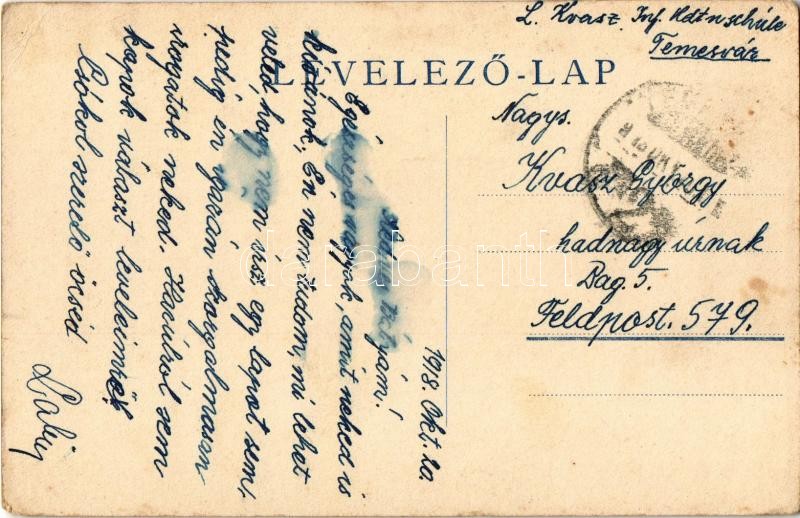 L. Kvasz Inf. Kdtnschule
Temesvár
LEVELEZŐ-LAP
Nagys.
Kvasz György
hadnagy úrnak
Bag. 5.
Feldpost. 579.
1918. Okt. 20.
bátyám!
Egészséges vagyok, amit neked is
kívánok, Én nem tudom, mi lehet
veled, hogy nem irsz egy lapot sem,
pedig én igazán szorgalmasan
irogatok neked. Hazúról sem
kapok választ leveleimre.
Csókol szerető öcséd
Laby
darabanth.com